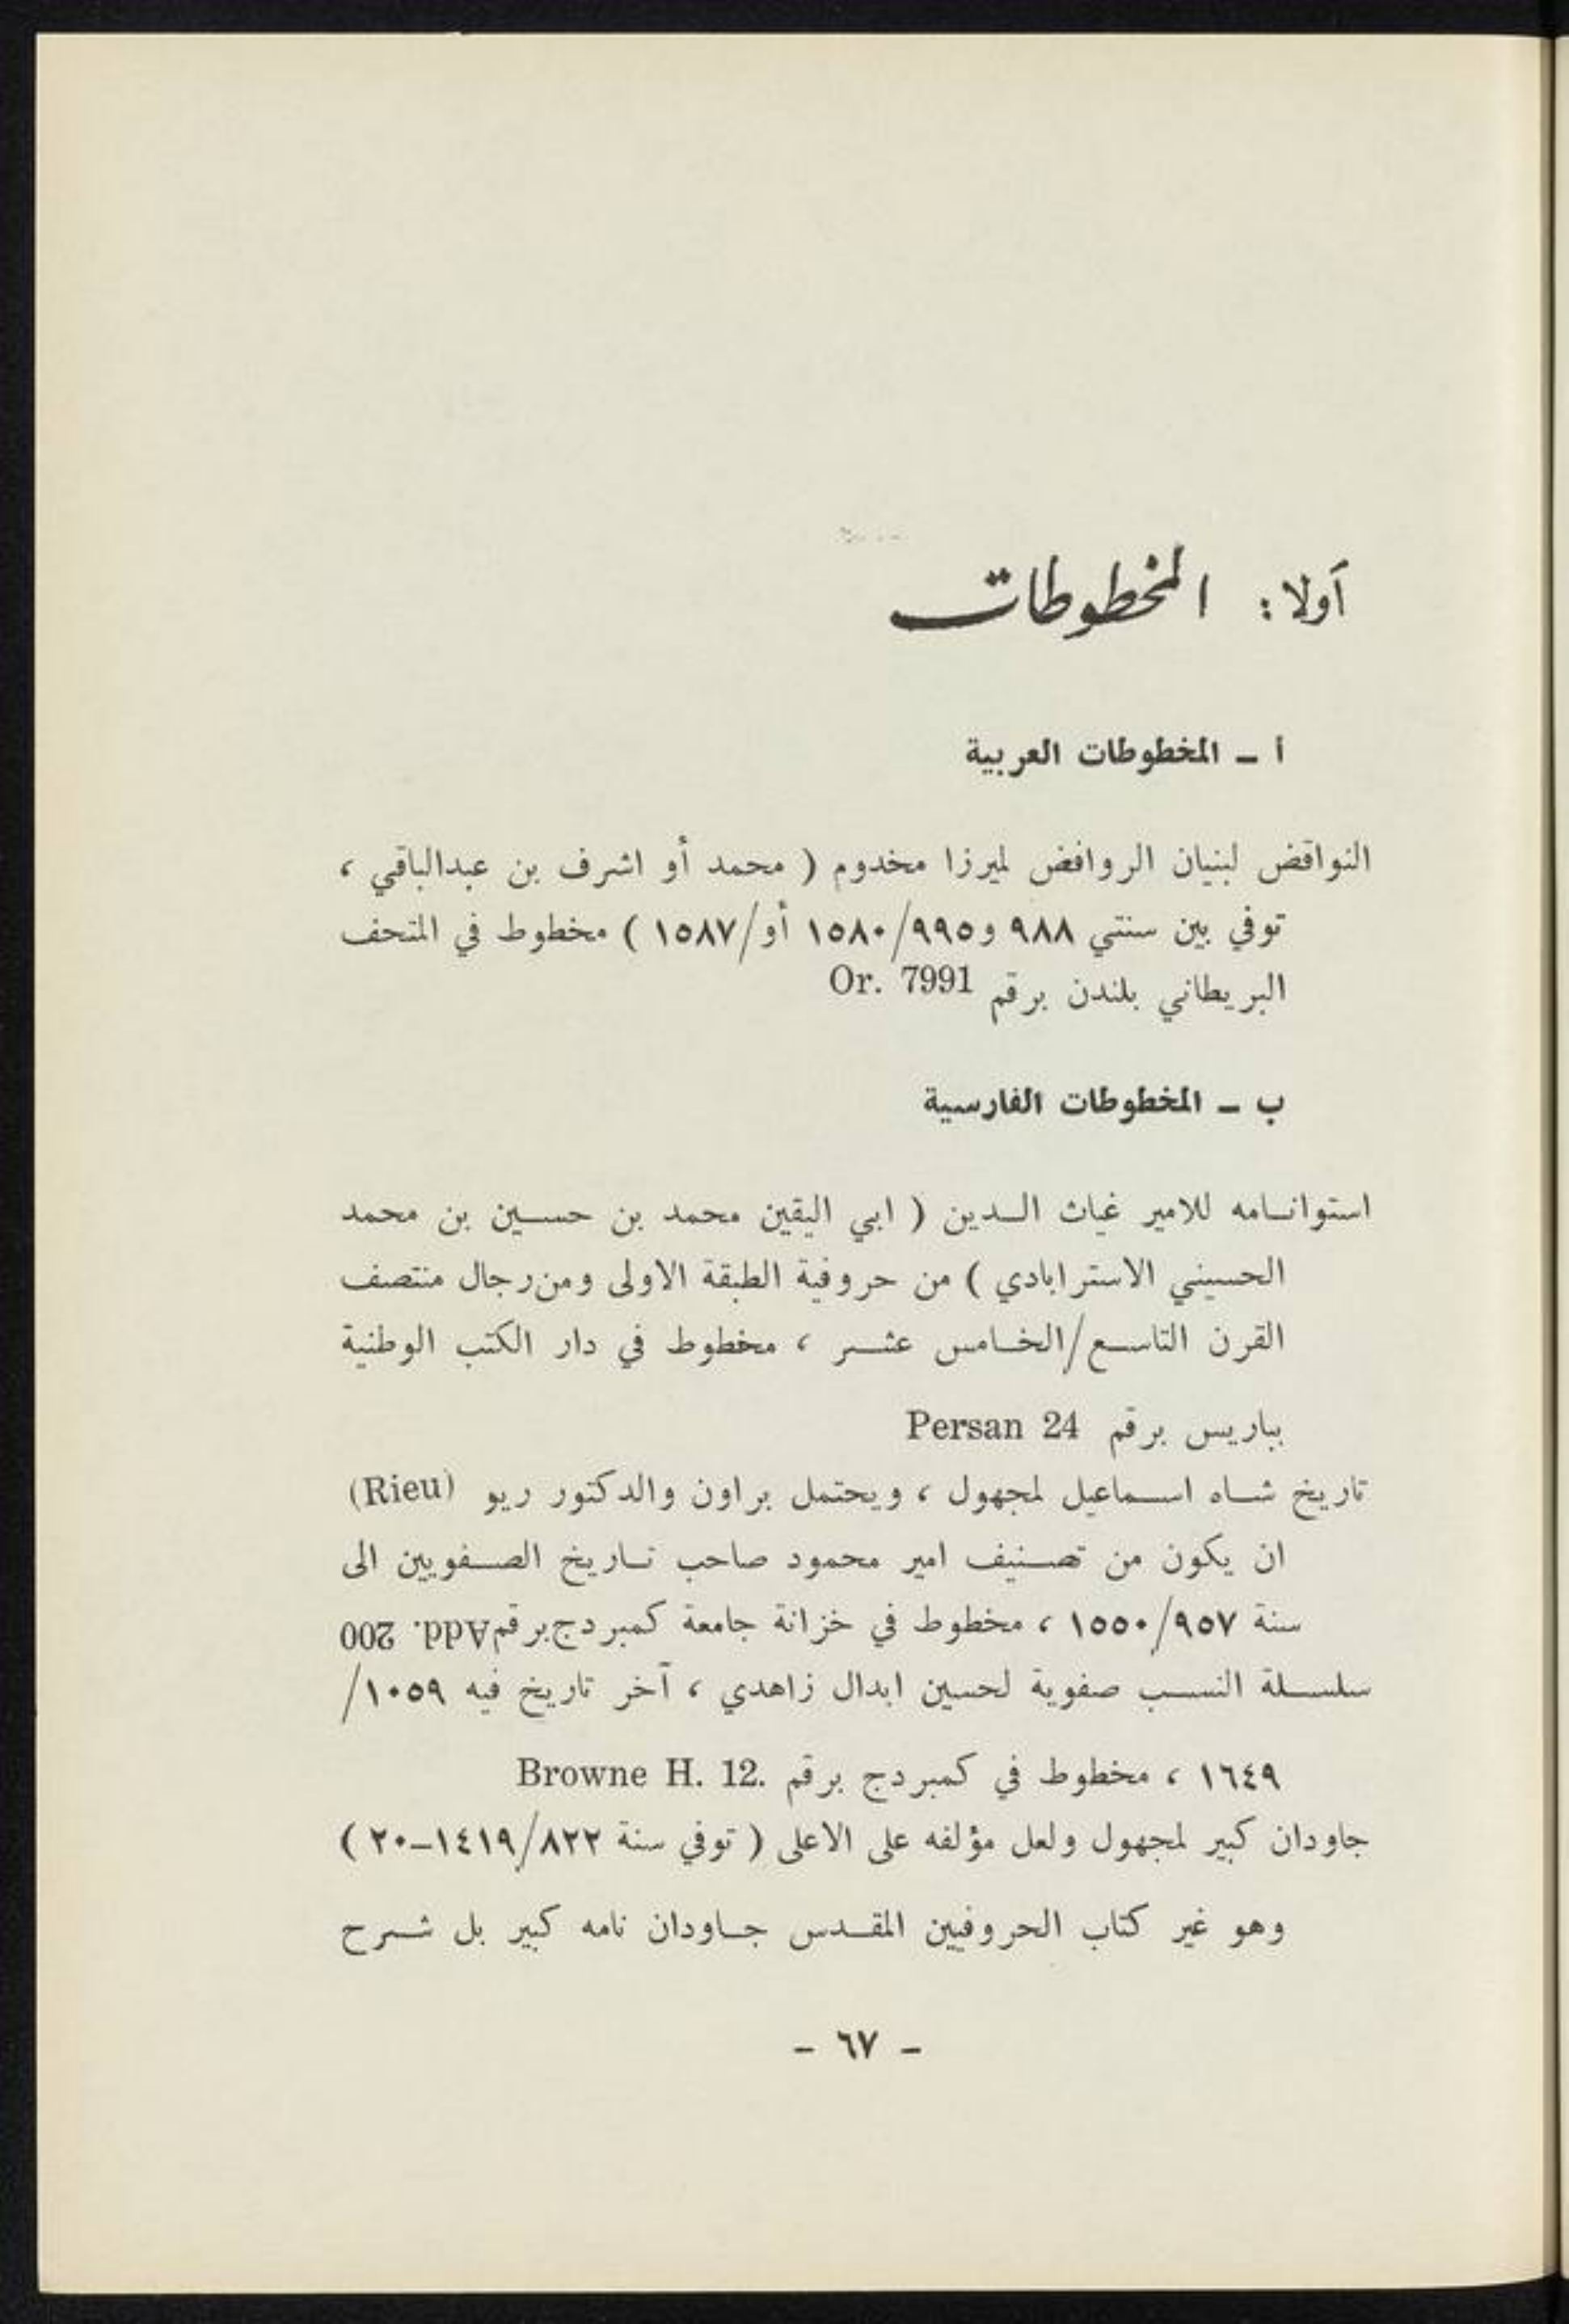 أولا: المخطوطات
أ ـ المخطوطات العربية
النواقض لبنيان الروافض لميرزا مخدوم ( محمد أو اشرف بن عبدالباقي ،
توفي بين سنتي ٩٨٨ و٩٩٥/١٥٨٠ أو/١٥٨٧ ) مخطوط في المتحف
البريطاني بلندن برقم Or. 7991
ب ـ المخطوطات الفارسية
استوانامه للامير غياث الدين ( ابي اليقين محمد بن حسين بن محمد
الحسيني الاسترابادي ) من حروفية الطبقة الاولى ومن رجال منتصف
القرن التاسع/الخامس عشر ، مخطوط في دار الكتب الوطنية
بباريس برقم Persan 24
تاريخ شاه اسماعيل لمجهول ، ويحتمل براون والدكتور ريو (Rieu)
ان يكون من تصنيف امير محمود صاحب تاريخ الصفويين الى
سنة ٩٥٧/١٥٥٠ ، مخطوط في خزانة جامعة كمبردج برقم Add. 200
سلسلة النسب صفوية لحسين ابدال زاهدي ، آخر تاريخ فيه ١٠٥٩/
١٦٤٩ ، مخطوط في كمبردج برقم Browne H. 12.
جاودان كبير لمجهول ولعل مؤلفه على الاعلى ( توفي سنة ٨٢٢/١٤١٩ـ٢٠ )
وهو غير كتاب الحروفيين المقدس جاودان نامه كبير بل شرح
- ٦٧ -